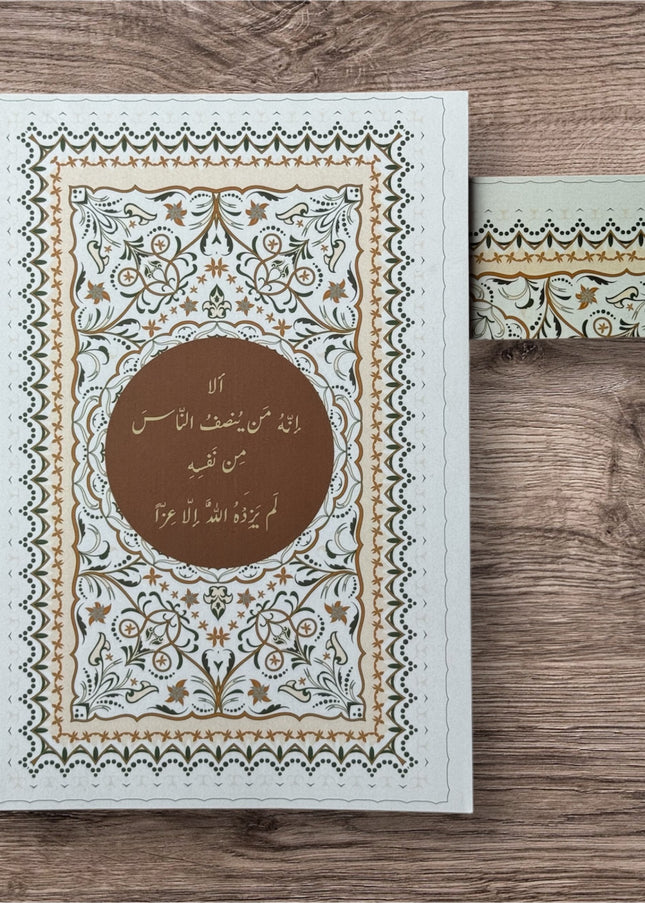 ألا
إنّهُ مَن يُنصفُ النَّاسَ
مِن نَفسِهِ
لَم يَزِدْهُ اللهُ إلّا عِزّاً